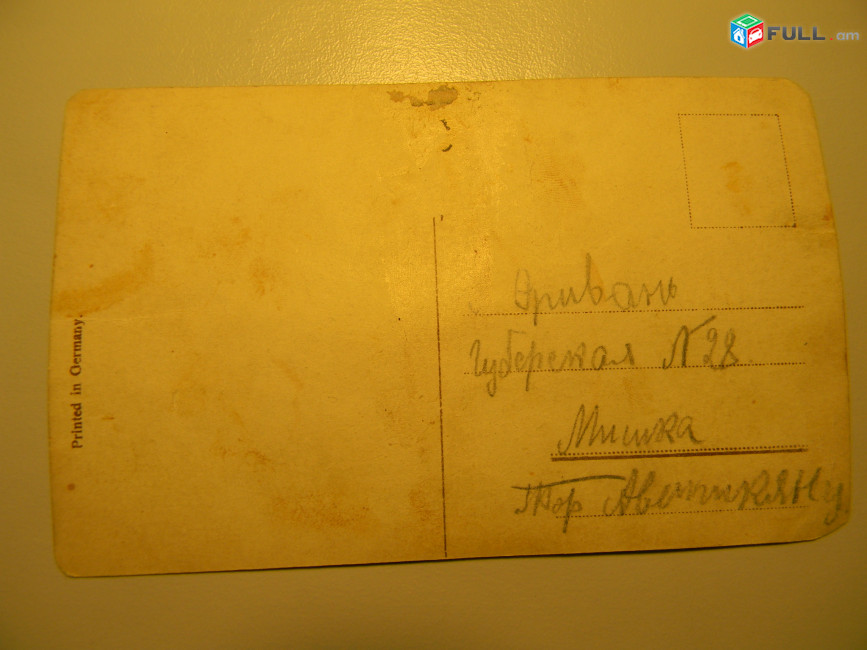 FULL.am
Printed in Germany.
Эривань
Губерская N 28.
Мишка
Тер Аветикянy